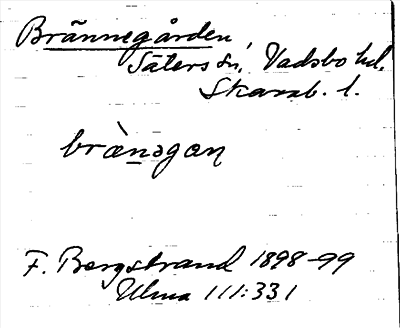 Brännegården
Säters sn, Vadsbo hd.
Skarab. l.
brànəgan
F. Bergstrand 1898-99
Ulma 111:331